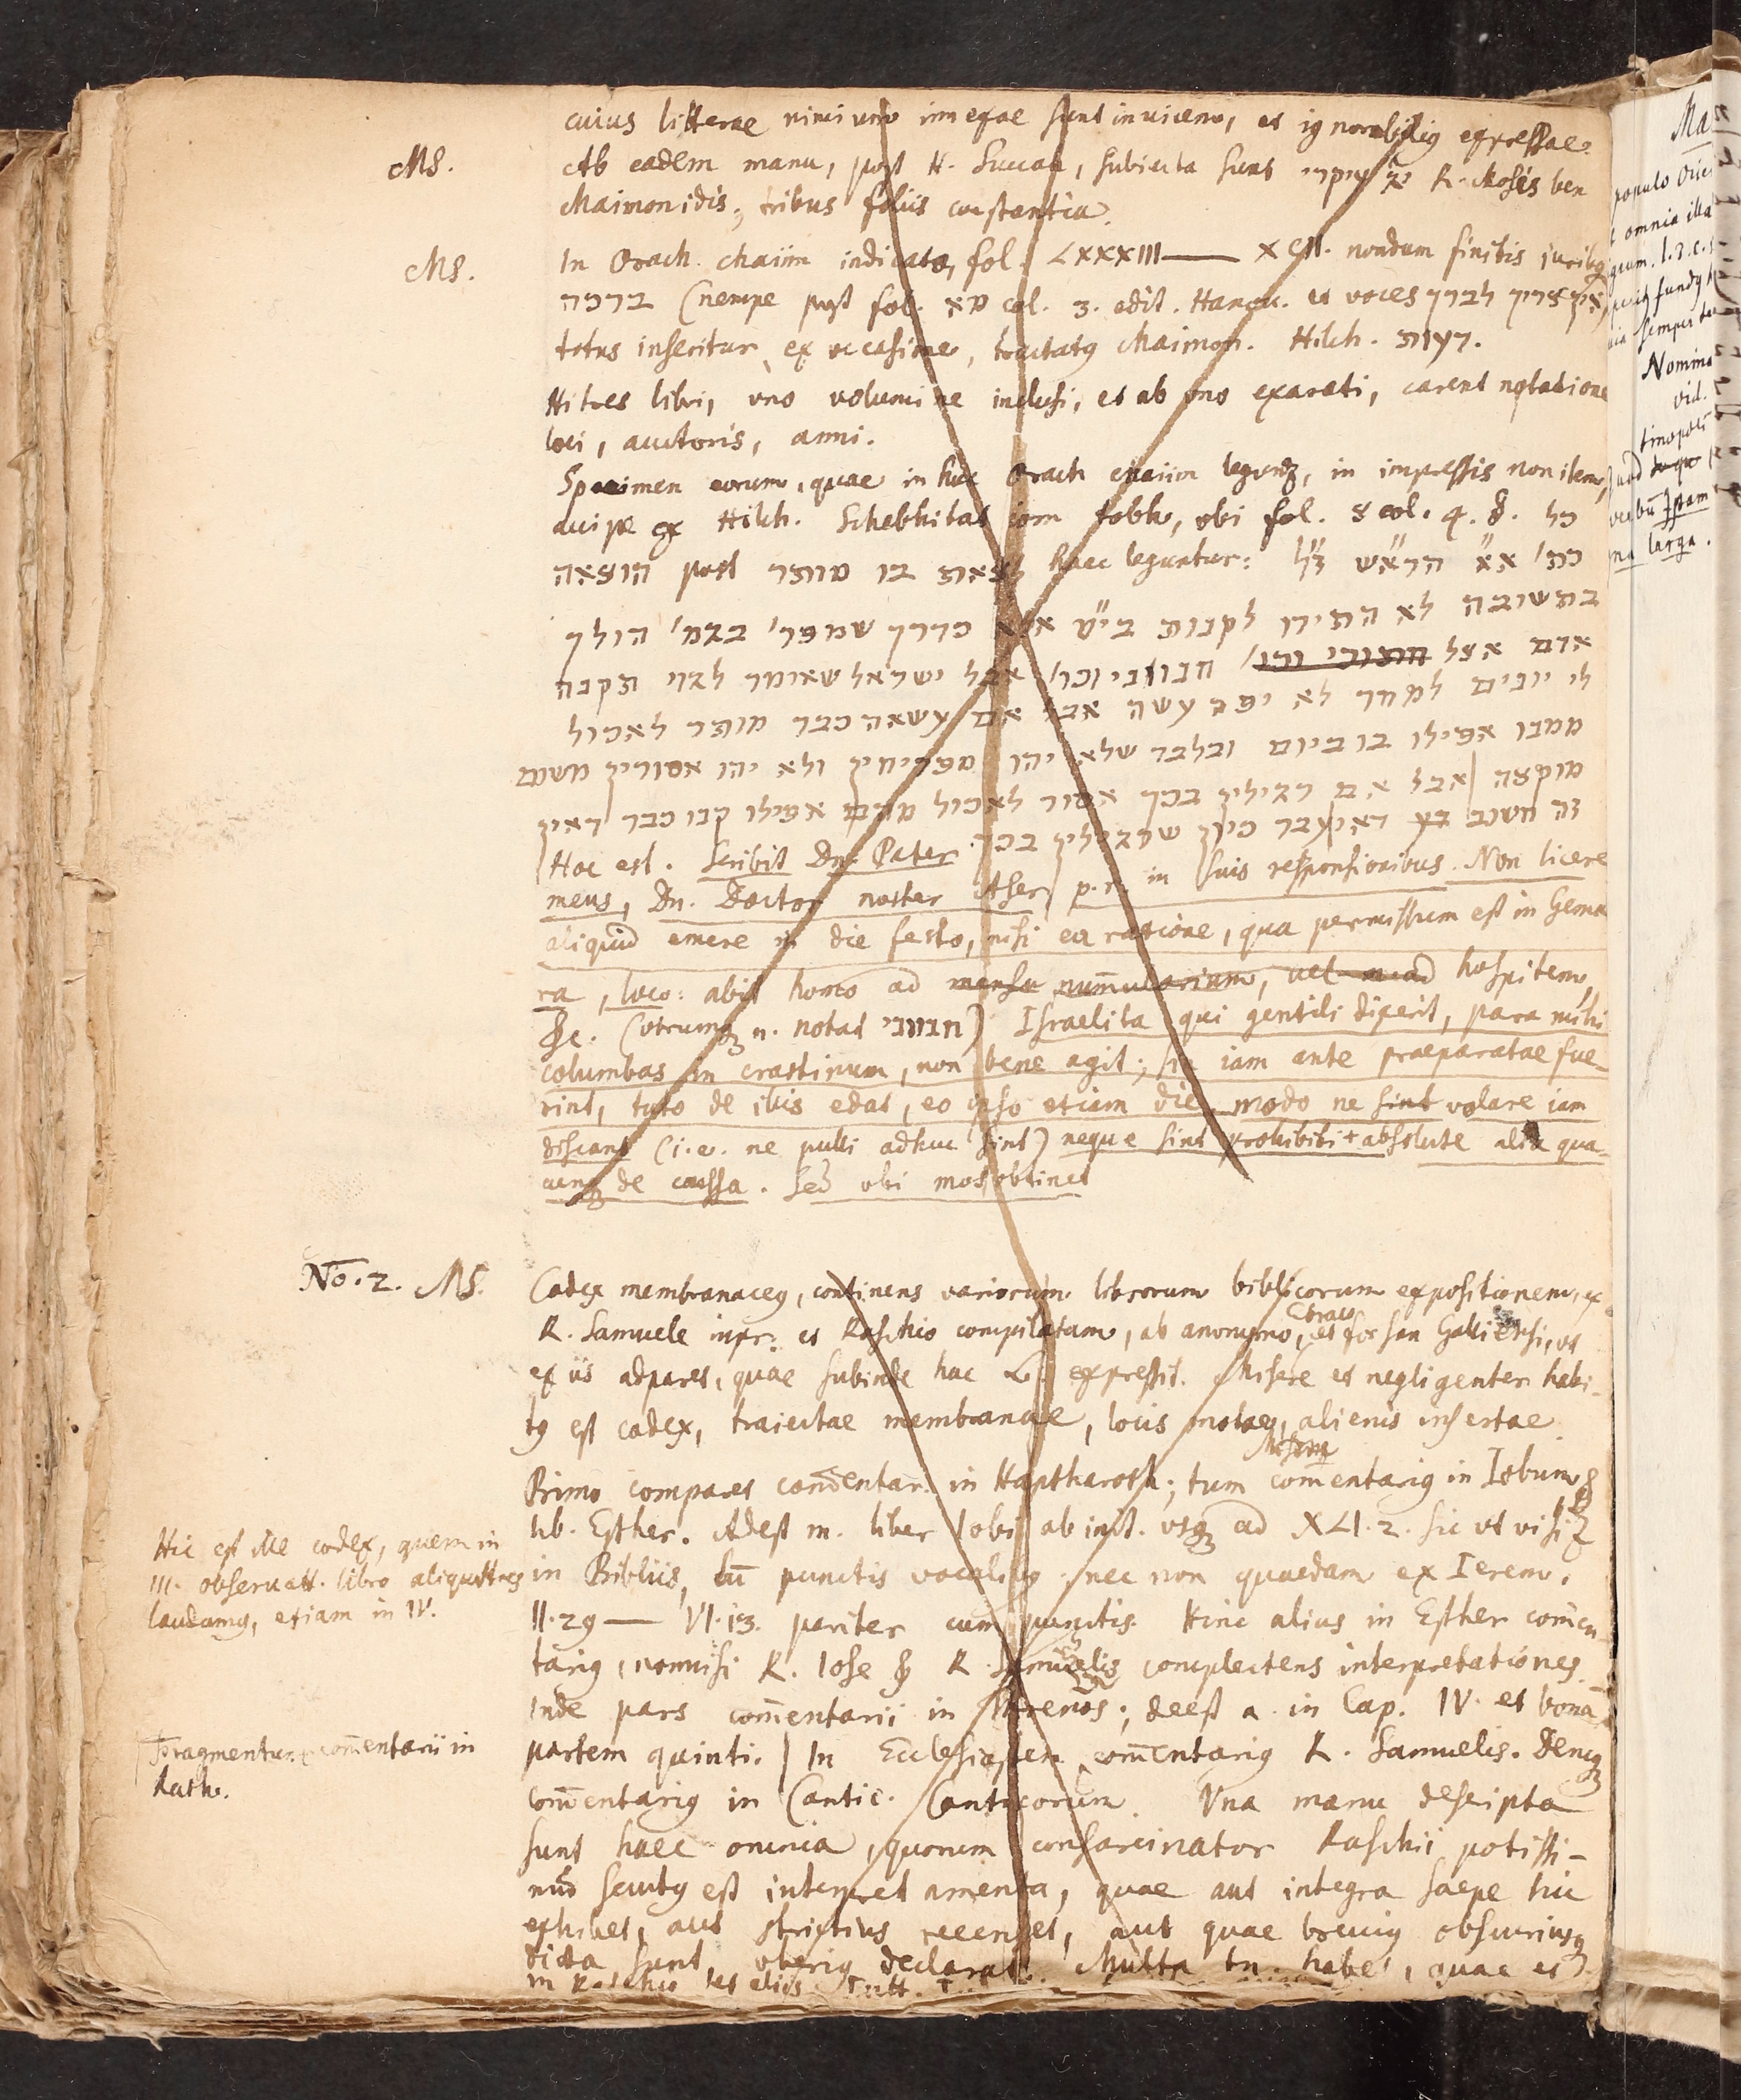 cuius litterae nimium innexae sunt inuicem, et ignorabilius expressae.
MS. Ab eadem manu, post H. Succah, subiecta sunt עיקרי י״ג R. Mosis ben
Maimonidis, tribus foliis constantia.
MS. In Orach chaiim indicato, fol. LXXXIII — XCII. nondum finitis juribus
ברכה (nempe post fol. מא col. 3. edit. Hanov. et voces אין צריך לברך)
totus inseritur, ex occasione, tractatus Maimon. Hilch. דעות.
Hi tres libri, uno volumine inclusi, et ab uno exarati, carent notatione
loci, auctoris, anni.
Specimen eorum, quae in hoc Orach chaiim leguntur, in impressis non item,
accipe ex Hilch. Schebhitat iom tobh, ubi fol. 8 col. 4. כל
הוצאה post מותר בו לצאת haec leguntur: כת׳ א״א הרא״ש ז״ל
בתשובה לא התירו לקנות בי״ט אלא כדרך שמפר׳ בגמ׳ הולך
אדם אצל חנוני וכו׳ אבל ישראל שאומר לגוי תקנה
לי יונים למחר לא יפה עשה אבל אם עשאה כבר מותר לאכול
ממנו אפילו בו ביום ובלבד שלא יהו מפריחין ולא יהו אסורין משום
מוקצה אבל אם רגילין בכך אסור לאכול מהם אפילו קנו כבר דאין
זה חשוב דאיעבד כיון שרגילין בכך.
Hoc est. Scribit Dn. Pater
meus, Dn. Doctor noster Ascher p. r. in suis responsionibus. Non licere
aliquid emere in die festo, nisi ea ratione, qua permissum est in Gema
ra, loco: abit homo ad nummularium, vel ad hospitem,
&c. (utrumque n. notat חנווני) Israelita qui gentili dixerit, para mihi
columbas in crastinum, non bene agit; si iam ante praeparatae fue-
rint, tuto de ibis edat, eo ipso etiam die, modo ne sint volare iam
discant (i.e. ne pulli adhuc sint) neque sint prohibiti + absolute alia qua-
cunque de caussa. Sed ubi mos obtinet
No. 2. MS. Codex membranaceus, continens variorum librorum biblicorum expositionem, ex
R. Samuele inpr. et Raschio compilatam, ab anonymo, et forsan Galliensi, ut
ex iis adparet, quae subinde hac L. expressit. Misere et negligenter habi-
tus est codex, traiectae membranae, locis motae, alienis insertae.
Primo comparet commentar. in Haphtharoth; tum commentarius in Iobum &
lib. Esther. Adest m. liber Iobi ab init. usque ad XLI. 2. sic ut
in Bibliis, cum punctis vocalibus; nec non quaedam ex Ierem.
II. 29 — VI. 13. pariter cum punctis. Hinc alius in Esther commen
tarius, nonnisi R. Iose & R. Samuelis complectens interpretationes.
Inde pars commentarii in Threnos; deest a. in Cap. IV. et bonam
partem quinti. | In Ecclesiasten commentarius R. Samuelis. Denique
commentarius in Cantic. Canticorum. Una manu descripta
sunt haec omnia, quorum consarcinator Raschii potissi-
mum secutus est interpretamenta, quae aut integra saepe hic
exhibet, aut strictius recenset, aut quae breuius obscuriusque
dicta sunt, uberius declarat. Multa tn. habet, quae et
Hic est ille codex, quem in
III. obseruatt. libro aliquoties
laudamus, etiam in IV.
Fragmentum commentarii in
Ruth.